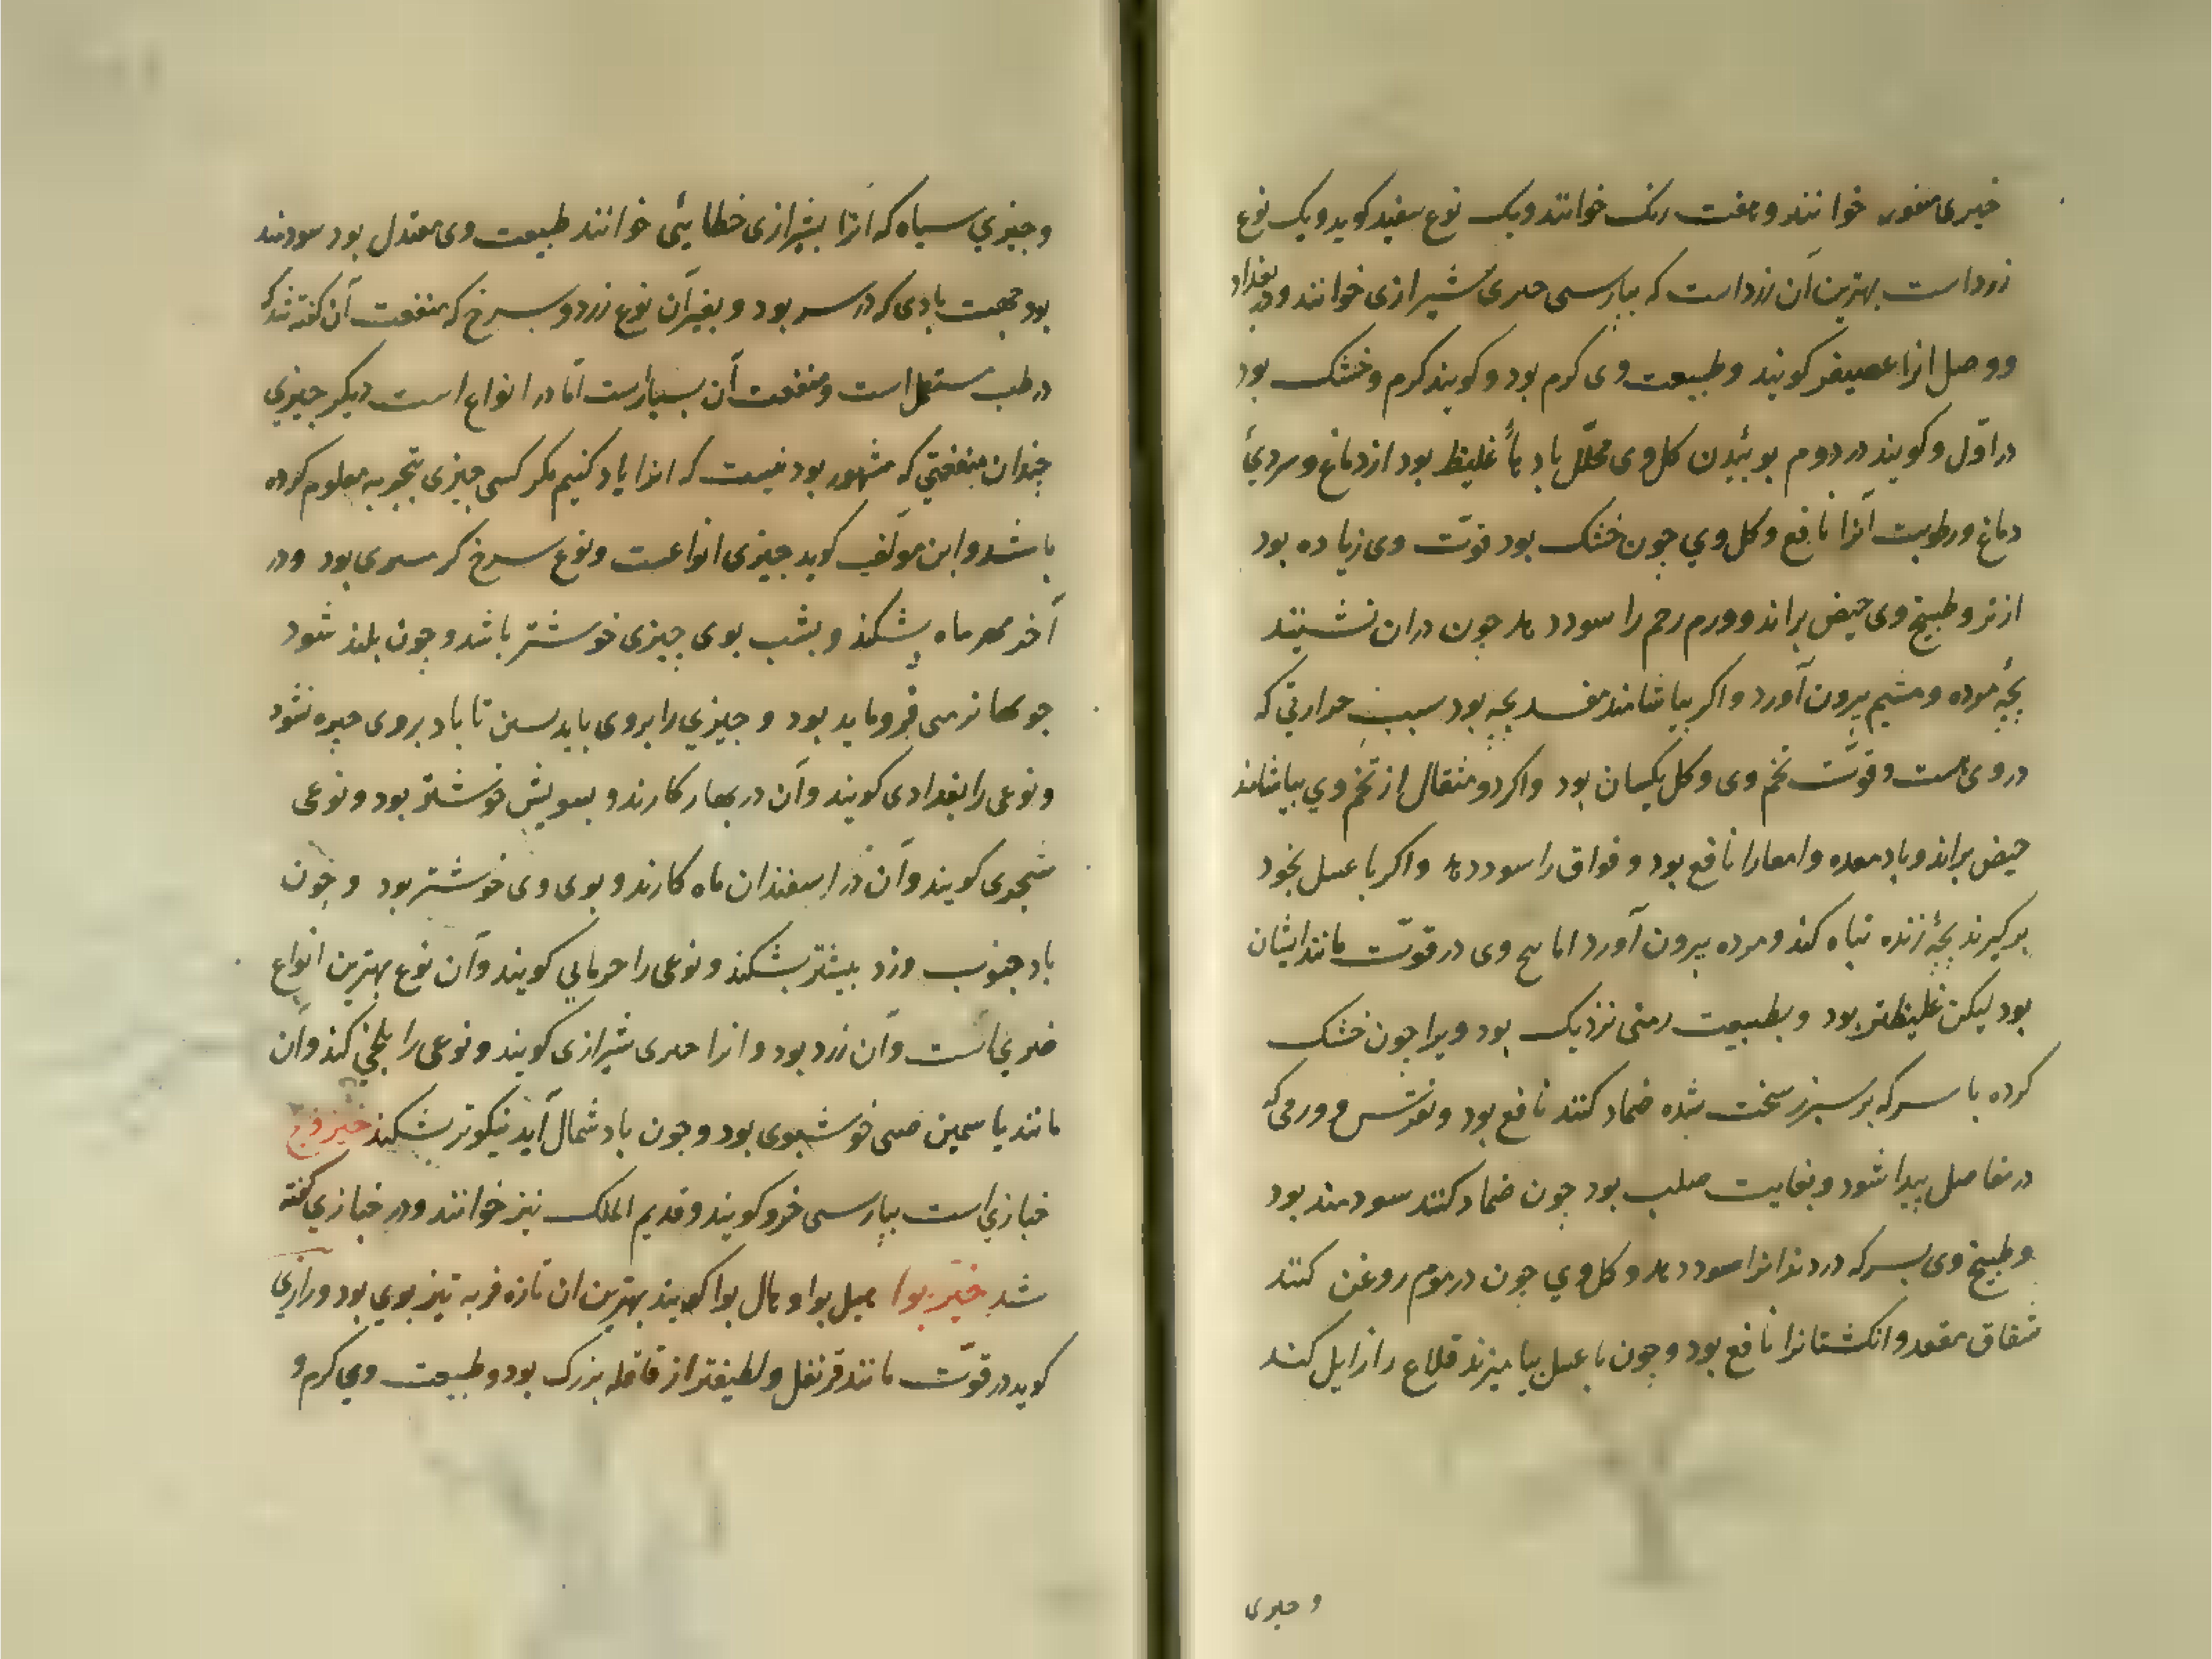 خیری منفور خوانند و هفت رنک خوانند و یک نوع سفید کوید و یک نوع
زرد است بهترین آن زرد است که بپارسی حیری شیرازی خوانند و در بغداد
و وصل انرا عصیفر کویند و طبیعت وی کرم بود و کویند کرم و خشک بود
در اوّل و کویند در دوم بوئیدن کل وی محلّل باد غلیظ بود از دماغ و سردیٔ
دماغ و رطوبت آنرا نافع و کل وی چون خشک بود قوّت وی زیاده بود
از تر و طبیخ وی حیض براند و ورم رحم را سود دهد چون دران نشینند
بچۀ مرده و مشیم بیرون آورد و اکر بیاشامند مفسد بچه بود سبب حرارتی که
در وی هست و قوّت تخم وی و کل یکسان بود و اکر دو مثقال از تخم وی بیاشامند
حیض براند و باد معده و امعا را نافع بود و فواق را سود دهد و اکر با عسل بخود
بر کیرند بچۀ زنده تباه کند و مرده بیرون آورد اما بیخ وی در قوّت مانند ایشان
بود لیکن غلیظتر بود و بطبیعت زمنی نزدیک بود ویرا چون خشک
کرده با سرکه بر سپرز سخت شده ضماد کنند نافع بود و نقرس و ورمی که
در مفاصل پیدا شود و بغایت صلب بود چون ضماد کنند سودمند بود
و طبیخ وی بسرکه درد دندانرا سود دهد و کل وی چون در موم روغن کنند
شقاق مقعد و انکشتانرا نافع بود و چون با عسل بیامیزند قلاع را زایل کند
و حیری
و جیزی سیاه که انرا بشیرازی خطایئی خوانند طبیعت وی معتدل بود سودمند
بود جهت بادی که در سر بود و بغیر آن نوع زرد و سرخ که منفعت آن کفته شد که
در طب مستعمل است و منفعت آن بسیارست امّا در انواع است دیکر جیزی
چندان منفعتی که مشهور بود نیست که انرا یاد کنیم مکر کسی چیزی بتجربه معلوم کرده
باشد و این مولّف کوید جیزی انواعست و نوع سرخ کرمسیری بود و در
آخر مهر ماه بشکند و بشب بوی جیزی خوشتر باشد و چون بلند شود
چوبها نرمی فرو باید بود و جیزی را بروی باید بستن تا باد بروی چیره نشود
و نوعی را بغدادی کویند و آن در بهار کارند و ببویش خوشتر بود و نوعی
شجری کویند و آن در اسفندان ماه کارند و بوی وی خوشتر بود و چون
باد جنوب وزد بیشتر بشکند و نوعی را حرمایی کویند و آن نوع بهترین انواع
خیریاست و آن زرد بود و انرا حیری شیرازی کویند و نوعی را بلخی کند و آن
مانند یاسمین صینی خوشبوی بود و چون باد شمال آید نیکوتر بشکند خیروج
خبازی است بپارسی خرو کویند و قدیم الملک نیز خوانند و در خبازی کفته
شد خیر بوا هیل بوا و هال بوا کویند بهترین ان تازه فربه تیز بوی بود و رازی
کوید در قوّت مانند قرنفل و لطیفتر از قاقله بزرک بود و طبیعت وی کرم و